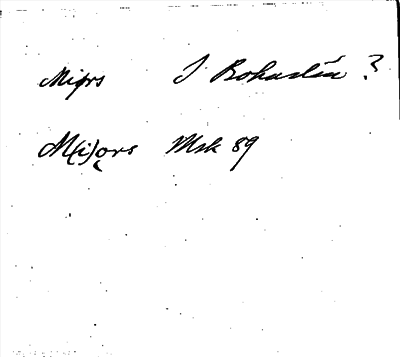 Miǫrs S Bohuslän ?
M(i)ǫrs Msk 89